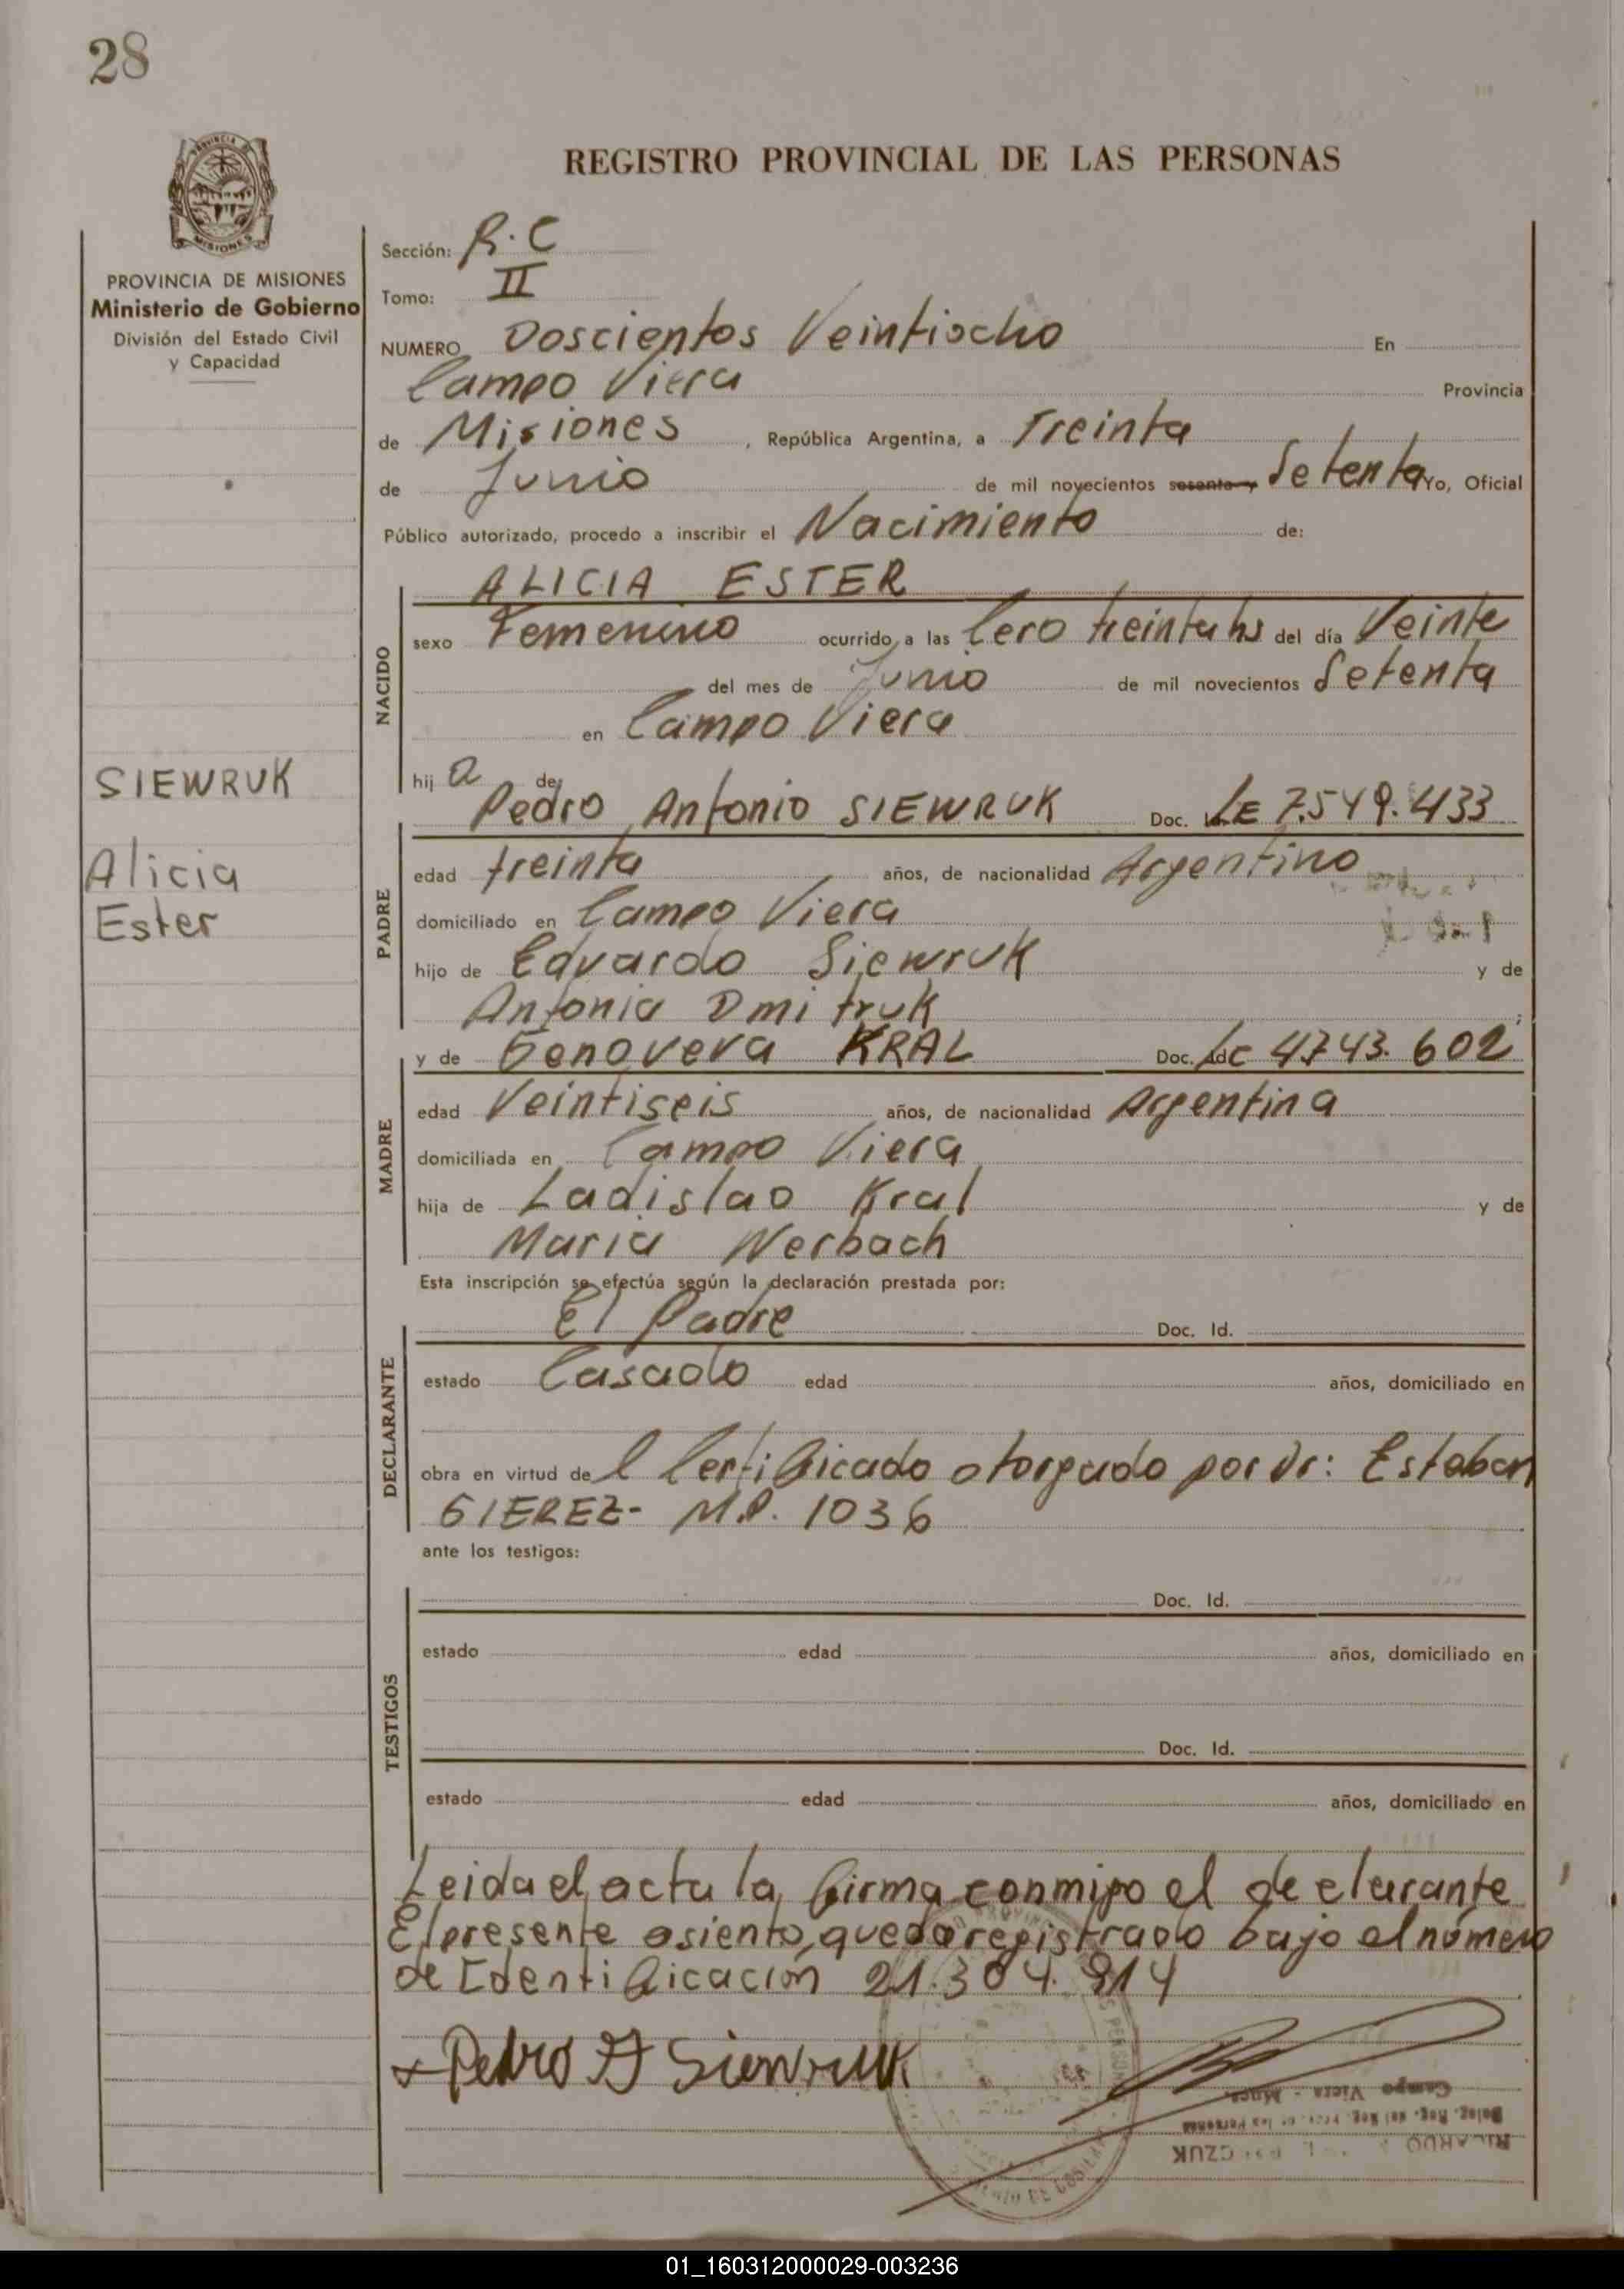 28
REGISTRO PROVINCIAL DE LAS PERSONAS
PROVINCIA DE MISIONES
Ministerio de Gobierno
División del Estado Civil
y Capacidad
SIEWRUK
Alicia
Ester
Sección: R.C
Tomo: II
NUMERO Doscientos Veintiocho En
Campo Viera Provincia
de Misiones, República Argentina, a Treinta
de Junio de mil novecientos sesenta y Setenta Yo, Oficial
Público autorizado, procedo a inscribir el Nacimiento de:
NACIDO
ALICIA ESTER
sexo Femenino ocurrido a las Cero treinta hs del día Veinte
del mes de Junio de mil novecientos Setenta
en Campo Viera
hij a de:
PADRE
Pedro Antonio SIEWRUK Doc. LE 7.549.433
edad treinta años, de nacionalidad Argentino
domiciliado en Campo Viera
hijo de Eduardo Siewruk y de
Antonia Dmitruk ;
MADRE
y de Genoveva KRAL Doc. LC 4.743.602
edad Veintiseis años, de nacionalidad Argentina
domiciliada en Campo Viera
hija de Ladislao Kral y de
Maria Werbach
Esta inscripción se efectúa según la declaración prestada por:
DECLARANTE
El Padre Doc. Id.
estado Casado edad años, domiciliado en
obra en virtud del Certificado otorgado por Dr: Esteban
GIEREZ- M.P. 1036
ante los testigos:
TESTIGOS
Doc. Id.
estado edad años, domiciliado en
Doc. Id.
estado edad años, domiciliado en
Leida el acta la firma conmigo el declarante
El presente asiento, queda registrado bajo el número
de Identificación 21.304.914
Pedro A Siewruk
Campo Viera
RICARDO
01_160312000029-003236